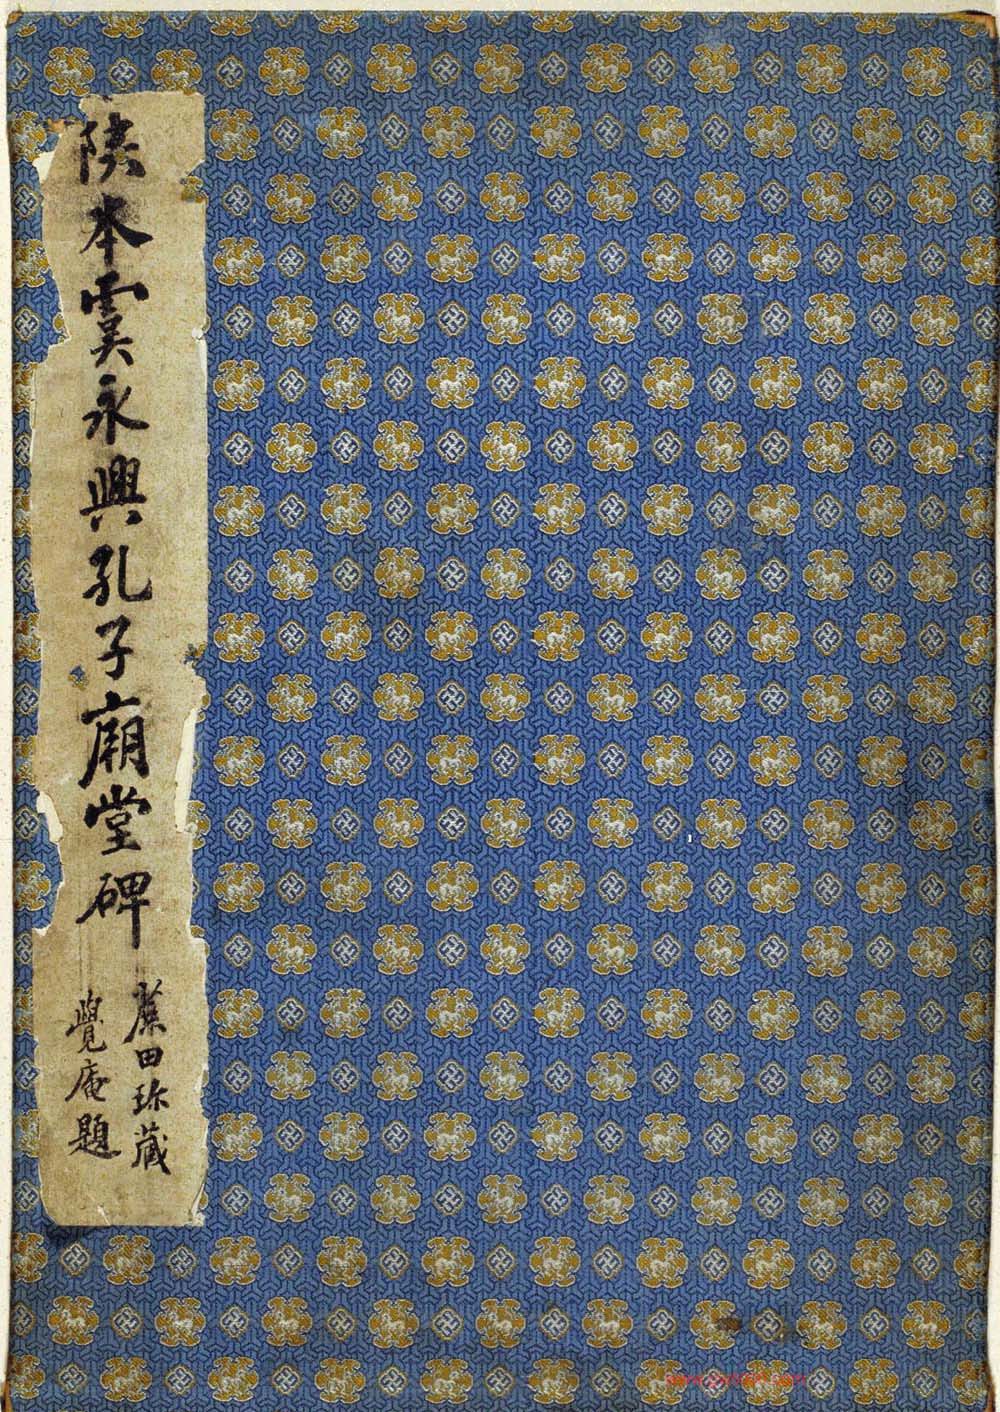 陝本虞永興孔子廟堂碑
藁田珍藏
覺庵題